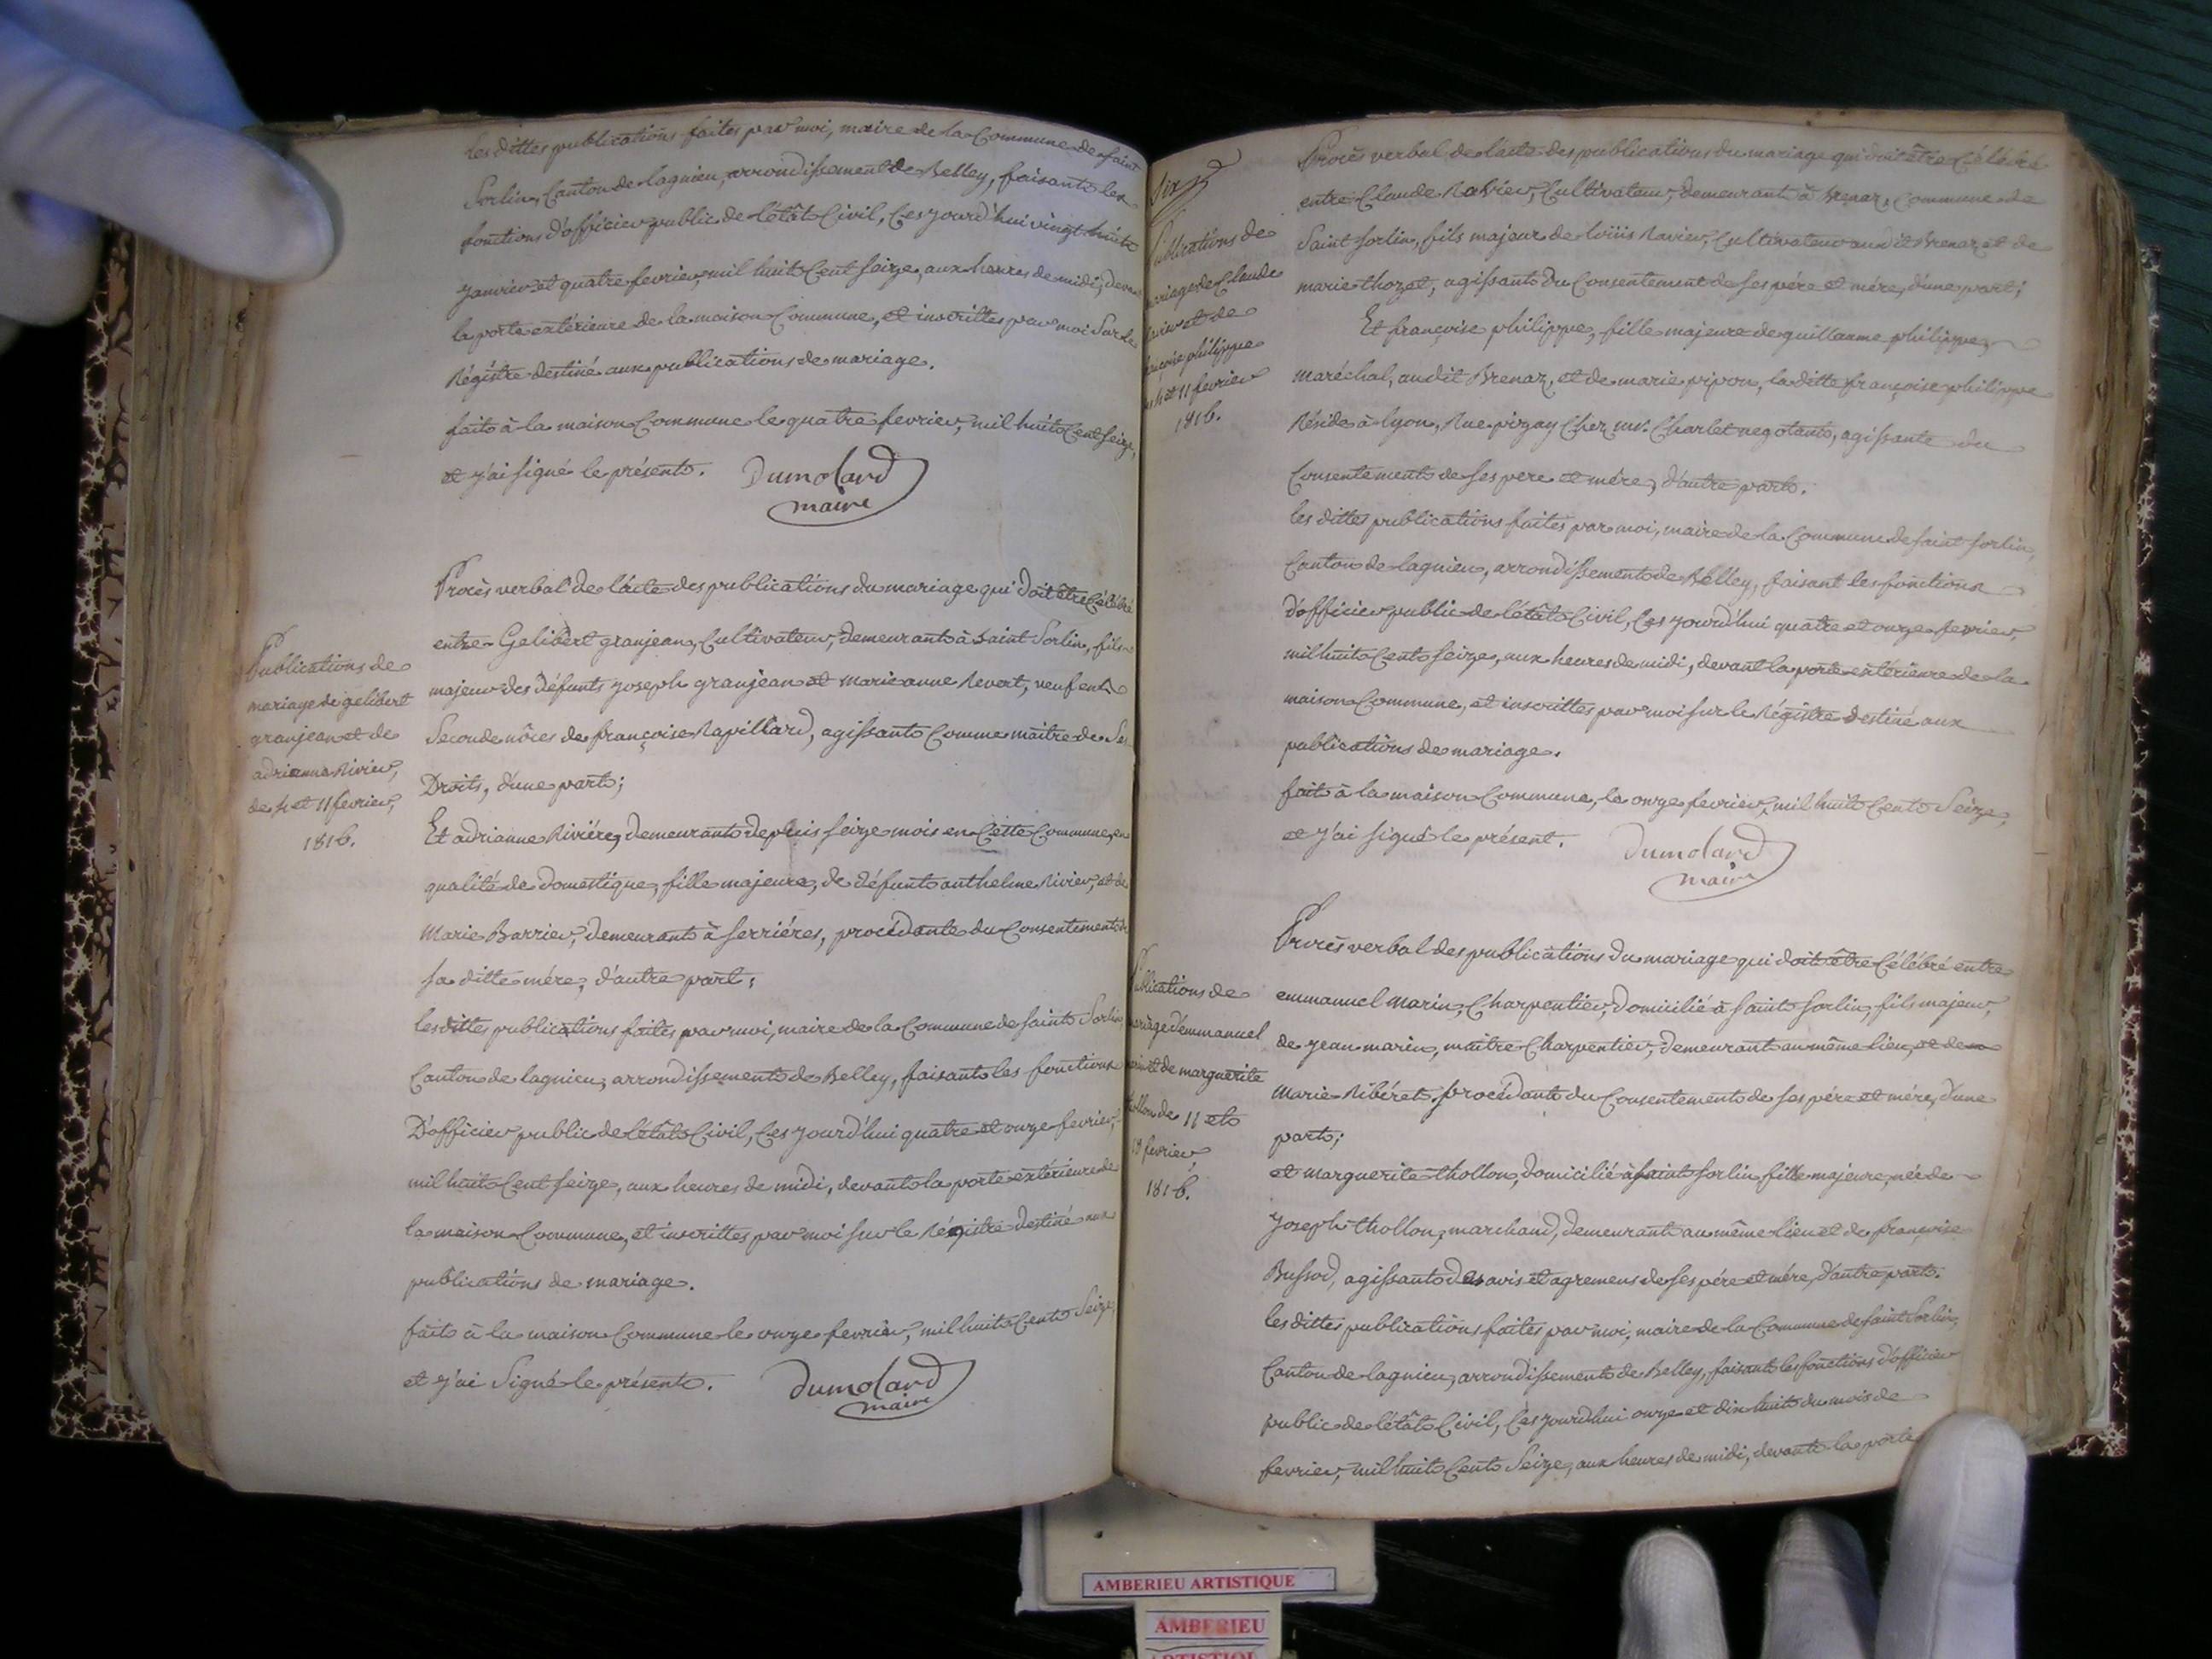 les dittes publications faites par moi, maire de la Commune de Saint
Sorlin, Canton de lagnieu, arrondissement de Belley, faisant les
fonctions d'officier public de l'état Civil, Ces jourd'hui vingt huit
janvier et quatre fevrier, mil huit Cent seize, aux heures de midi, devant
la porte extérieure de la maison Commune, et inscrittes par moi Sur le
Régistre destiné aux publications de mariage.
fait à la maison Commune le quatre fevrier, mil huit Cent seize,
et j'ai signé le présent. Dumolard
maire
Publications de
mariage de gelibert
granjean et de
adrianne Rivier,
de 4 et 11 fevrier,
1816.
Procès verbal de l'acte des publications du mariage qui doit être Célébré
entre Gelibert granjean, Cultivateur, demeurant à Saint Sorlin, fils
majeur des défunts joseph granjean et marie anne Revert, veuf en
Seconde nôces de françoise Rapillard, agissant Comme maître de Ses
Droits, d'une part;
Et adrianne Rivière, demeurant depuis seize mois en Cette Commune, en
qualité de domestique, fille majeure, de défunt anthelme Rivier, et de
Marie Barrier, demeurant à serriéres, procédante du Consentement de
sa ditte mére, d'autre part;
les dittes publications faites par moi, maire de la Commune de saint Sorlin
Canton de lagnieu, arrondissement de Belley, faisant les fonctions
D'officier public de l'état Civil, Ces jourd'hui quatre et onze fevrier,
mil huit Cent seize, aux heures de midi, devant la porte extérieure de
la maison Commune, et inscrittes par moi sur le Régistre destiné aux
publications de mariage.
fait à la maison Commune le onze fevrier, mil huit Cent Seize,
et j'ai Signé le présent. Dumolard
maire
Six
Publications de
mariage de Claude
Ravier et de
françoise philippe
des 4 et 11 fevrier
1816.
Procès verbal de l'acte des publications du mariage qui doit être Célébré
entre Claude Ravier, Cultivateur, demeurant à Brenaz, Commune de
Saint Sorlin, fils majeur de loüis Ravier, Cultivateur audit Brenaz et de
marie thozet, agissant du Consentement de ses pére et mére, d'une part;
Et françoise philippe, fille majeure de guillaume philippe,
maréchal, audit Brenaz, et de marie pipon, la ditte françoise philippe
Réside à lyon, Rue pizay Chez mr. Charlet negotiant, agissante du
Consentement de ses pere et mére, d'autre part.
les dittes publications faites par moi, maire de la Commune de saint Sorlin,
Canton de lagnieu, arrondissement de Belley, faisant les fonctions
d'officier public de l'état Civil, Ces jourd'hui quatre et onze fevrier,
mil huit Cent seize, aux heures de midi, devant la porte extérieure de la
maison Commune, et inscrittes par moi sur le Régistre destiné aux
publications de mariage.
fait à la maison Commune, le onze fevrier, mil huit Cent Seize,
et j'ai signé le présent. Dumolard
maire
Publications de
mariage d'emmanuel
marin et de marguerite
thollon de 11 et
18 fevrier,
1816.
Procès verbal des publications du mariage qui doit être Célébré entre
emmanuel marin, Charpentier, domicilié à saint sorlin, fils majeur,
de jean marin, maître Charpentier, demeurant au même lieu, et de
Marie Ribéret, procédant du Consentement de ses pére et mére, d'une
part;
et marguerite thollon, domicilié à saint Sorlin fille majeure née de
joseph thollon, marchand, demeurant au même lieu et de françoise
Bussod, agissant des avis et agremens de ses pére et mére, d'autre part.
les dittes publications faites par moi, maire de la Commune de saint Sorlin,
Canton de lagnieu, arrondissement de Belley, faisant les fonctions d'officier
public de l'état Civil, Ces jourd'hui onze et dix huit du mois de
fevrier, mil huit Cent Seize, aux heures de midi, devant la porte
AMBERIEU ARTISTIQUE
AMBERIEU
ARTISTIQUE